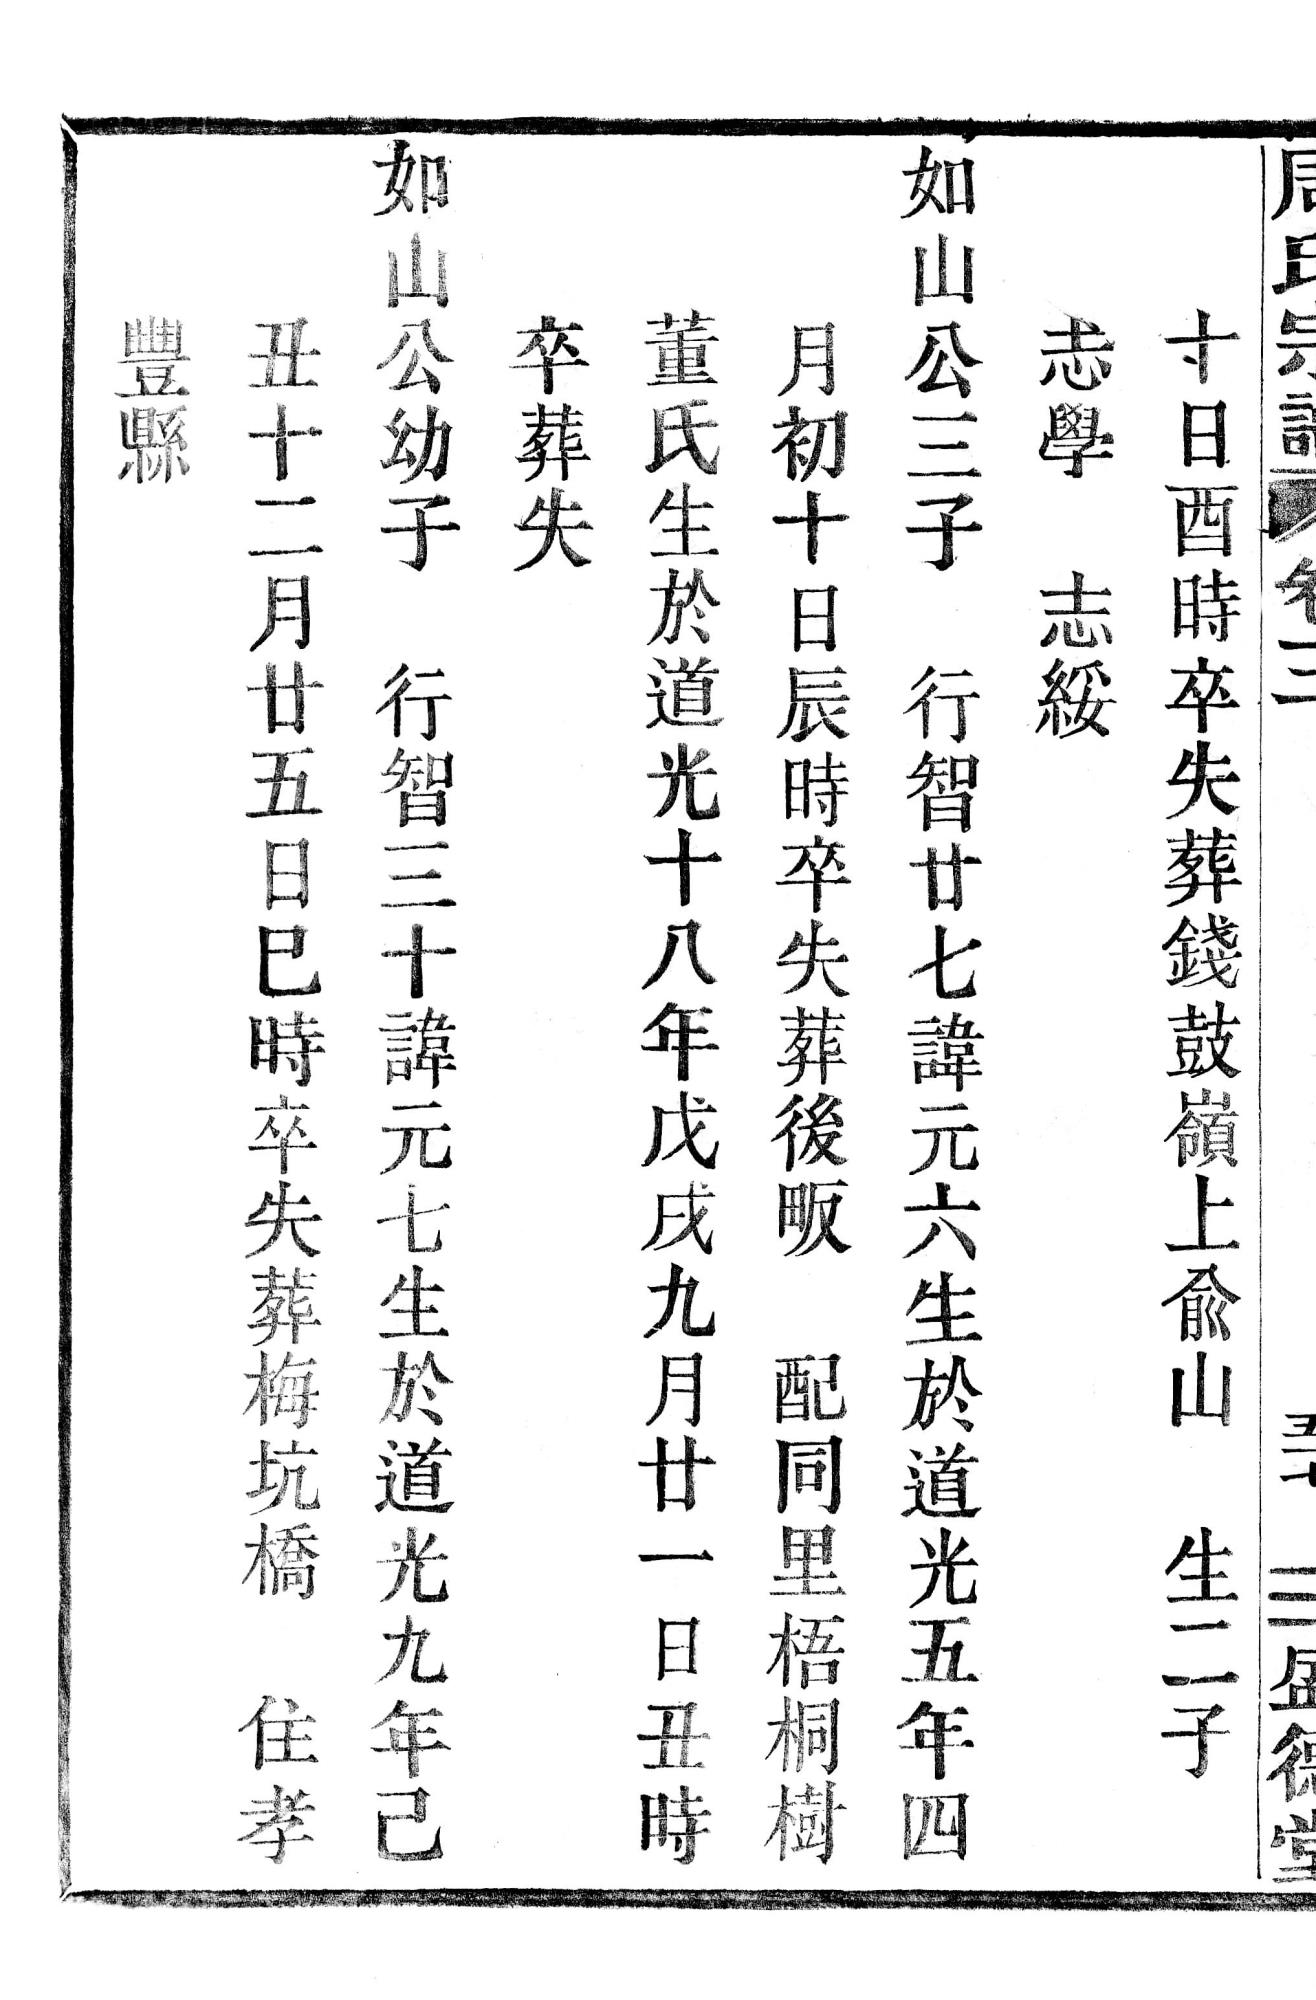 周氏宗譜 卷三 五十七 三 盛德堂
十日酉時卒失葬錢鼓嶺上俞山 生二子
志學 志綏
如山公三子 行智廿七諱元六生於道光五年四
月初十日辰時卒失葬後畈 配同里梧桐樹
董氏生於道光十八年戊戌九月廿一日丑時
卒葬失
如山公幼子 行智三十諱元七生於道光九年己
丑十二月廿五日巳時卒失葬梅坑橋 住孝
豐縣